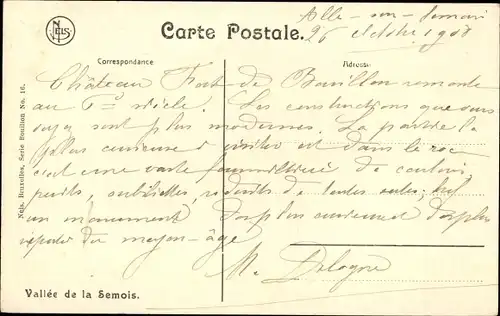 NELS
Carte Postale.
Alle-sur-Semois
26 Octobre 1908
Correspondance
Adresse
Château Fort de Bouillon remonte
au siècle. Les constructions que vous
voyez sont plus modernes. La partie la
plus curieuse à visiter est dans le roc
c'est une vaste fourmilière de couloirs,
puits, oubliettes, réduits de toutes sortes; bref
un monument des plus curieux et des plus
du moyen-âge
M. Delogne
Vallée de la Semois.
Nels, Bruxelles, Serie Bouillon No. 16.